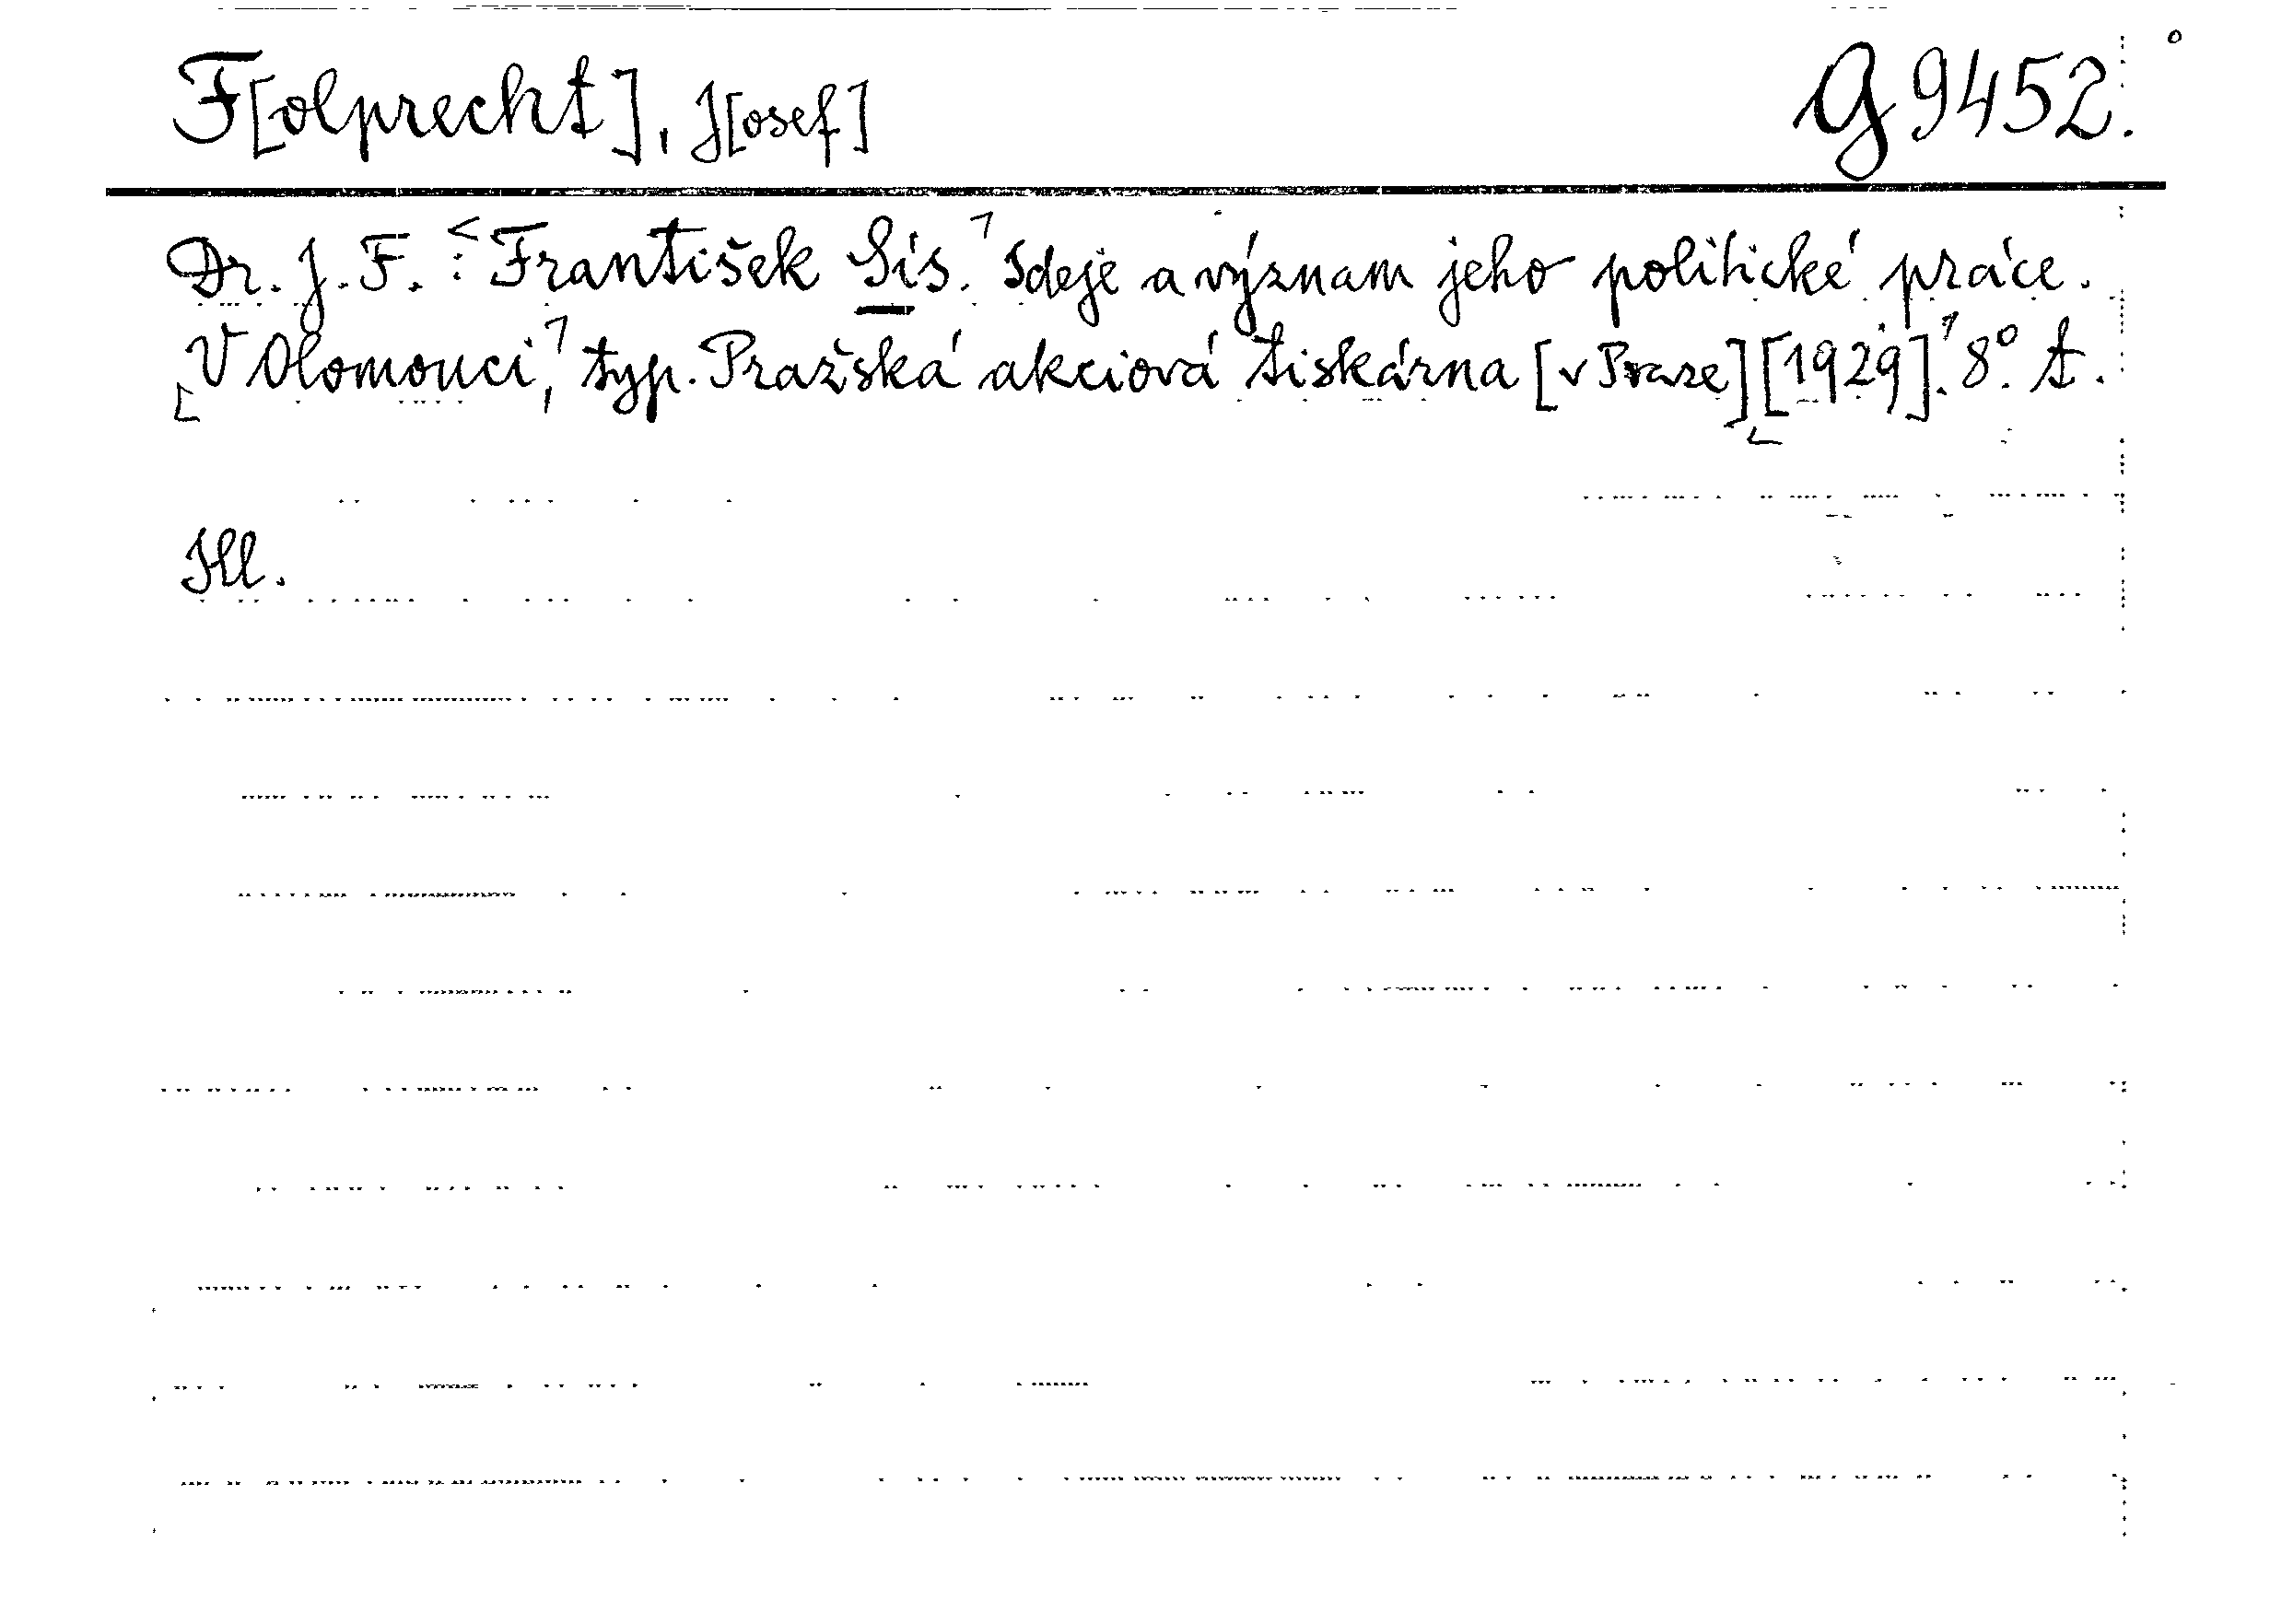 F[olprecht], J[osef] G 9452.
Dr. J. F.: František Sís. Ideje a význam jeho politické práce.
V Olomouci, typ. Pražská akciová tiskárna [v Praze] [1929]. 8°. A.
Hl.